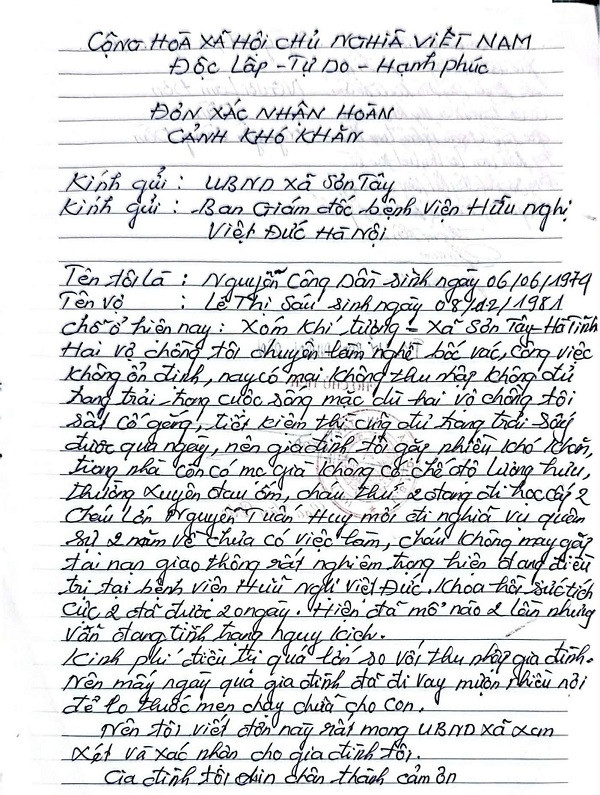 CỘNG HOÀ XÃ HỘI CHỦ NGHĨA VIỆT NAM
ĐỘC LẬP - TỰ DO - HẠNH PHÚC
ĐƠN XÁC NHẬN HOÀN
CẢNH KHÓ KHĂN
Kính gửi : UBND xã Sơn Tây
Kính gửi : Ban Giám đốc bệnh viện Hữu Nghị
Việt Đức Hà Nội
Tên tôi là : Nguyễn Công Dần sinh ngày 06/06/1974
Tên vợ : Lê Thị Sáu sinh ngày 08/12/1981
Chỗ ở hiện nay : Xóm Khí tượng - Xã Sơn Tây - Hà Tĩnh
Hai vợ chồng tôi chuyên làm nghề bốc vác, công việc
không ổn định, nay có mai không thu nhập không đủ
trang trải trong cuộc sống mặc dù hai vợ chồng tôi
rất cố gắng, tiết kiệm thì cũng đủ trang trải sống
được qua ngày, nên gia đình tôi gặp nhiều khó khăn,
trong nhà còn có mẹ già không có chế độ lương hưu,
thường xuyên đau ốm, cháu thứ 2 đang đi học cấp 2
Cháu lớn Nguyễn Tuấn Huy mới đi nghĩa vụ quân
sự 2 năm về chưa có việc làm, cháu không may gặp
tai nạn giao thông rất nghiêm trọng hiện đang điều
trị tại bệnh viện Hữu Nghị Việt Đức. Khoa hồi sức tích
cực 2 đã được 20 ngày. Hiện đã mổ não 2 lần nhưng
vẫn đang tình trạng nguy kịch.
Kinh phí điều trị quá lớn so với thu nhập gia đình.
Nên mấy ngày qua gia đình đã đi vay mượn nhiều nơi
để lo thuốc men chạy chữa cho con.
Nên tôi viết đơn này rất mong UBND xã xem
xét và xác nhận cho gia đình tôi.
Gia đình tôi chin chân thành cảm ơn